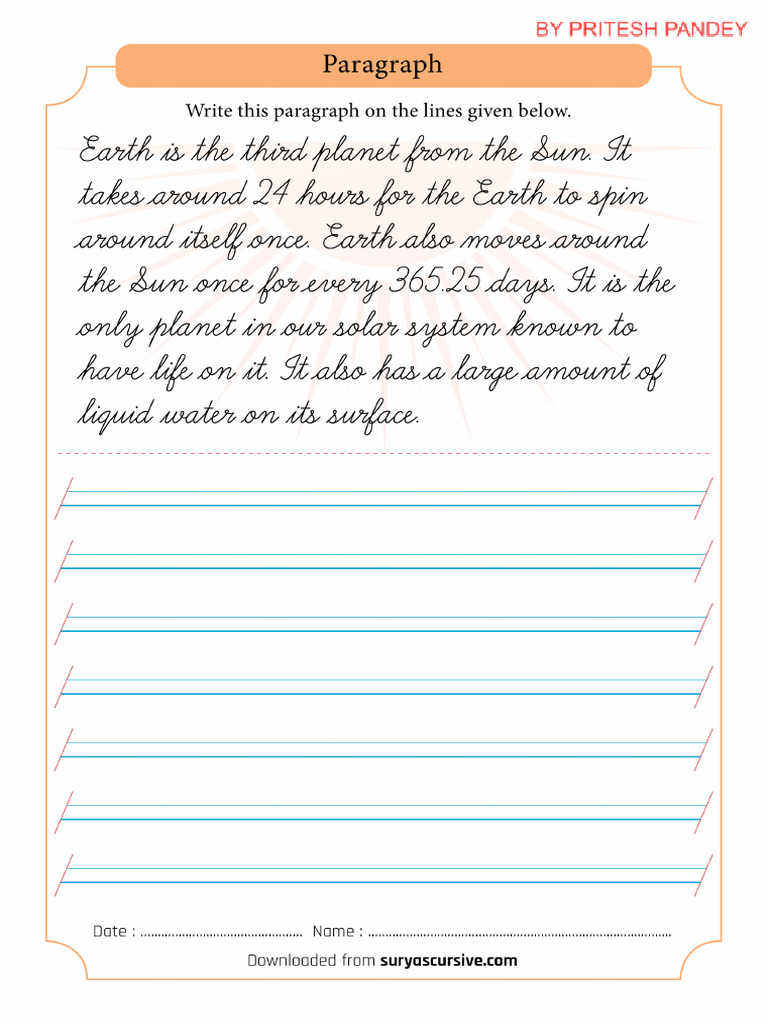 BY PRITESH PANDEY
Paragraph
Write this paragraph on the lines given below.
Earth is the third planet from the Sun. It
takes around 24 hours for the Earth to spin
around itself once. Earth also moves around
the Sun once for every 365.25 days. It is the
only planet in our solar system known to
have life on it. It also has a large amount of
liquid water on its surface.
Date : ............................................... Name : ........................................................................................
Downloaded from suryascursive.com